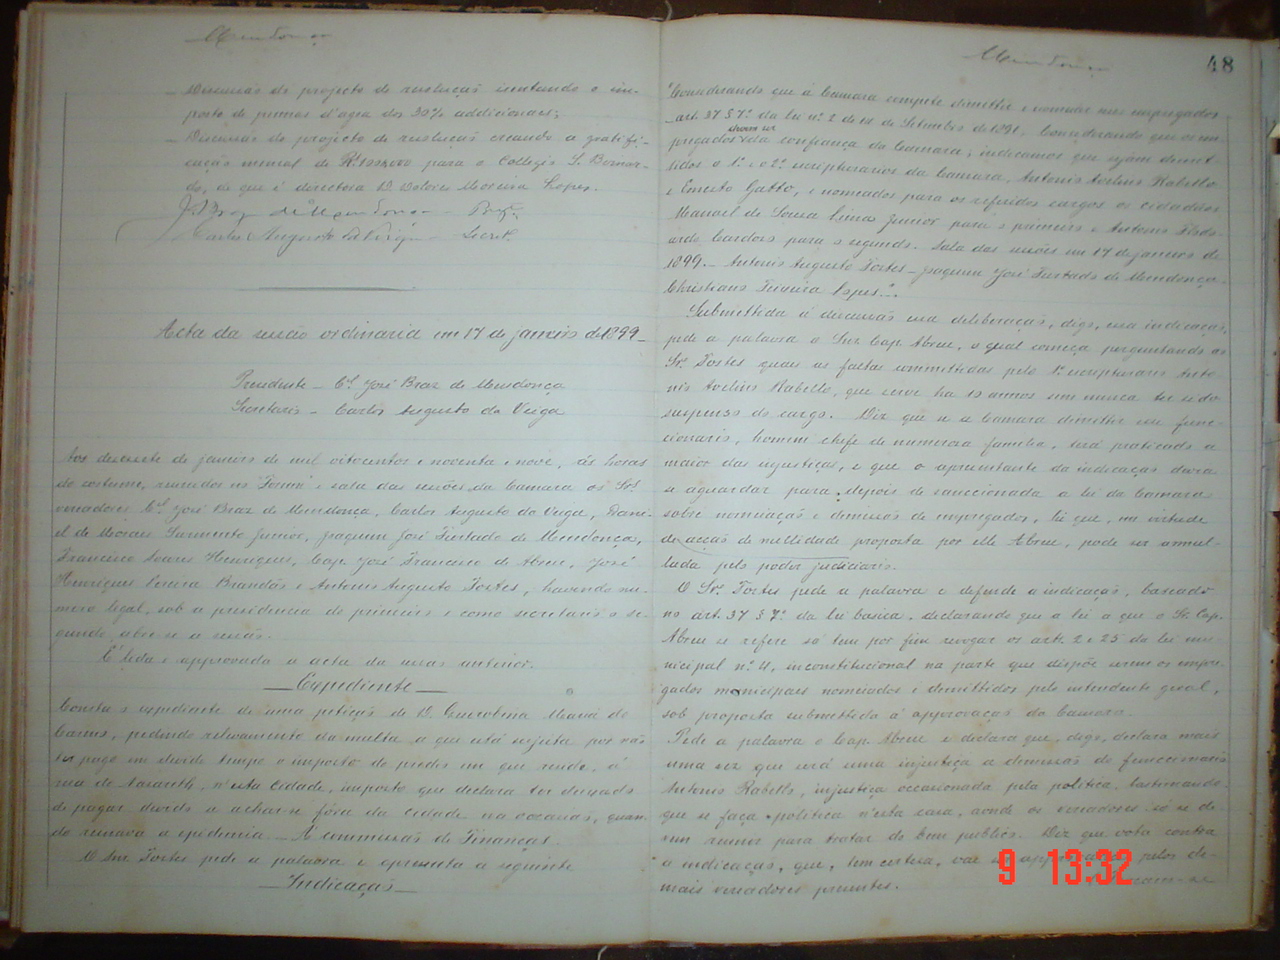 Mendonça
— Discussão do projecto de resolução isentando o im-
posto de pennas d'agua dos 30% addicionaes;
— Discussão do projecto de resolução creando a gratifi-
cação mensal de para o Collegio S. Bernar-
do, de que é directora D. Dolores Moreira Lopes.
J. Braz de Mendonça — Prez.
Carlos Augusto da Veiga — Secret.
Acta da sessão ordinaria em 17 de janeiro de 1899
Presidente — Cel. José Braz de Mendonça
Secretario — Carlos Augusto da Veiga
Aos desesete de janeiro de mil oitocentos e noventa e nove, ás horas
do costume, reunidos no "Forum" e sala das sessões da Camara os Srs.
vereadores Cel. José Braz de Mendonça, Carlos Augusto da Veiga, Dani-
el de Moraes Sarmento Junior, Joaquim José Furtado de Mendonça,
Francisco Soares Henriques, Cap. José Francisco de Abreu, José
Henrique Pereira Brandão e Antonio Augusto Fortes, havendo nu-
mero legal, sob a presidencia do primeiro e como secretario o se-
gundo, abre-se a sessão.
É lida e approvada a acta da sessão anterior.
— Expediente —
Consta o expediente de uma petição de D. Maria do
Carmo, pedindo relevamento da multa a que está sujeita por não
ter pago em devido tempo o imposto do predio em que reside, á
rua de Nazareth, n'esta cidade, imposto que declara ter deixado
de pagar devido a achar-se fóra da cidade na occasião, quan-
do reinava a epidemia — Á commissão de Finanças.
O Snr. Fortes pede a palavra e apresenta a seguinte
— Indicação —
Mendonça
48
"Considerando que á Camara compete demittir e nomear seus empregados
— art. 37 § 7º da lei nº 2 de 14 de Setembro de 1891. Considerando que os em-
pregados devem ser da confiança da Camara, indicamos que sejam demit-
tidos o 1º e o 2º escripturarios da Camara, Antonio Avelino Rabello
e Gatto, e nomeados para os referidos cargos os cidadãos
Manoel de Souza Lima Junior para o primeiro e Antonio
Cardoso para o segundo. Sala das sessões em 17 de janeiro de
1899. — Antonio Augusto Fortes — Joaquim José Furtado de Mendonça
Christiano Teixeira Lopes".
Submettida á discussão esta deliberação, digo, esta indicação,
pede a palavra o Snr. Cap. Abreu, o qual começa perguntando ao
Sr. Fortes quaes as faltas commettidas pelo 1º escripturario Anto-
nio Avelino Rabello, que serve ha 10 annos sem nunca ter sido
suspenso do cargo. Diz que se a Camara demittir esse func-
cionario, homem chefe de numerosa familia, será praticada a
maior das injustiças, e que o apresentante da indicação devia
se aguardar para depois de sanccionada a lei da Camara
sobre nomeação e demissão de empregados, lei que, na virtude
de acção de nullidade proposta por elle Abreu, pode ser annul-
lada pelo poder judiciario.
O Sr. Fortes pede a palavra e defende a indicação, baseado
no art. 37 § 7º da lei basica, declarando que a lei a que o Sr. Cap.
Abreu se refere só tem por fim revogar os art. 2 e 25 da lei mu-
nicipal nº 4, inconstitucional na parte que dispõe serem os empre-
gados municipaes nomeados e demittidos pelo intendente geral,
sob proposta submettida á approvação da Camara.
Pede a palavra o Cap. Abreu e declara que, digo, declara mais
uma vez que será uma injustiça a demissão do funccionario
Antonio Rabello, injustiça occasionada pela politica, lastimando
que se faça politica n'esta casa, aonde os vereadores só se de-
vem reunir para tratar do bem publico. Diz que vota contra
a indicação, que, tem certeza, vae ser pelos de-
mais vereadores presentes.
9 13:32